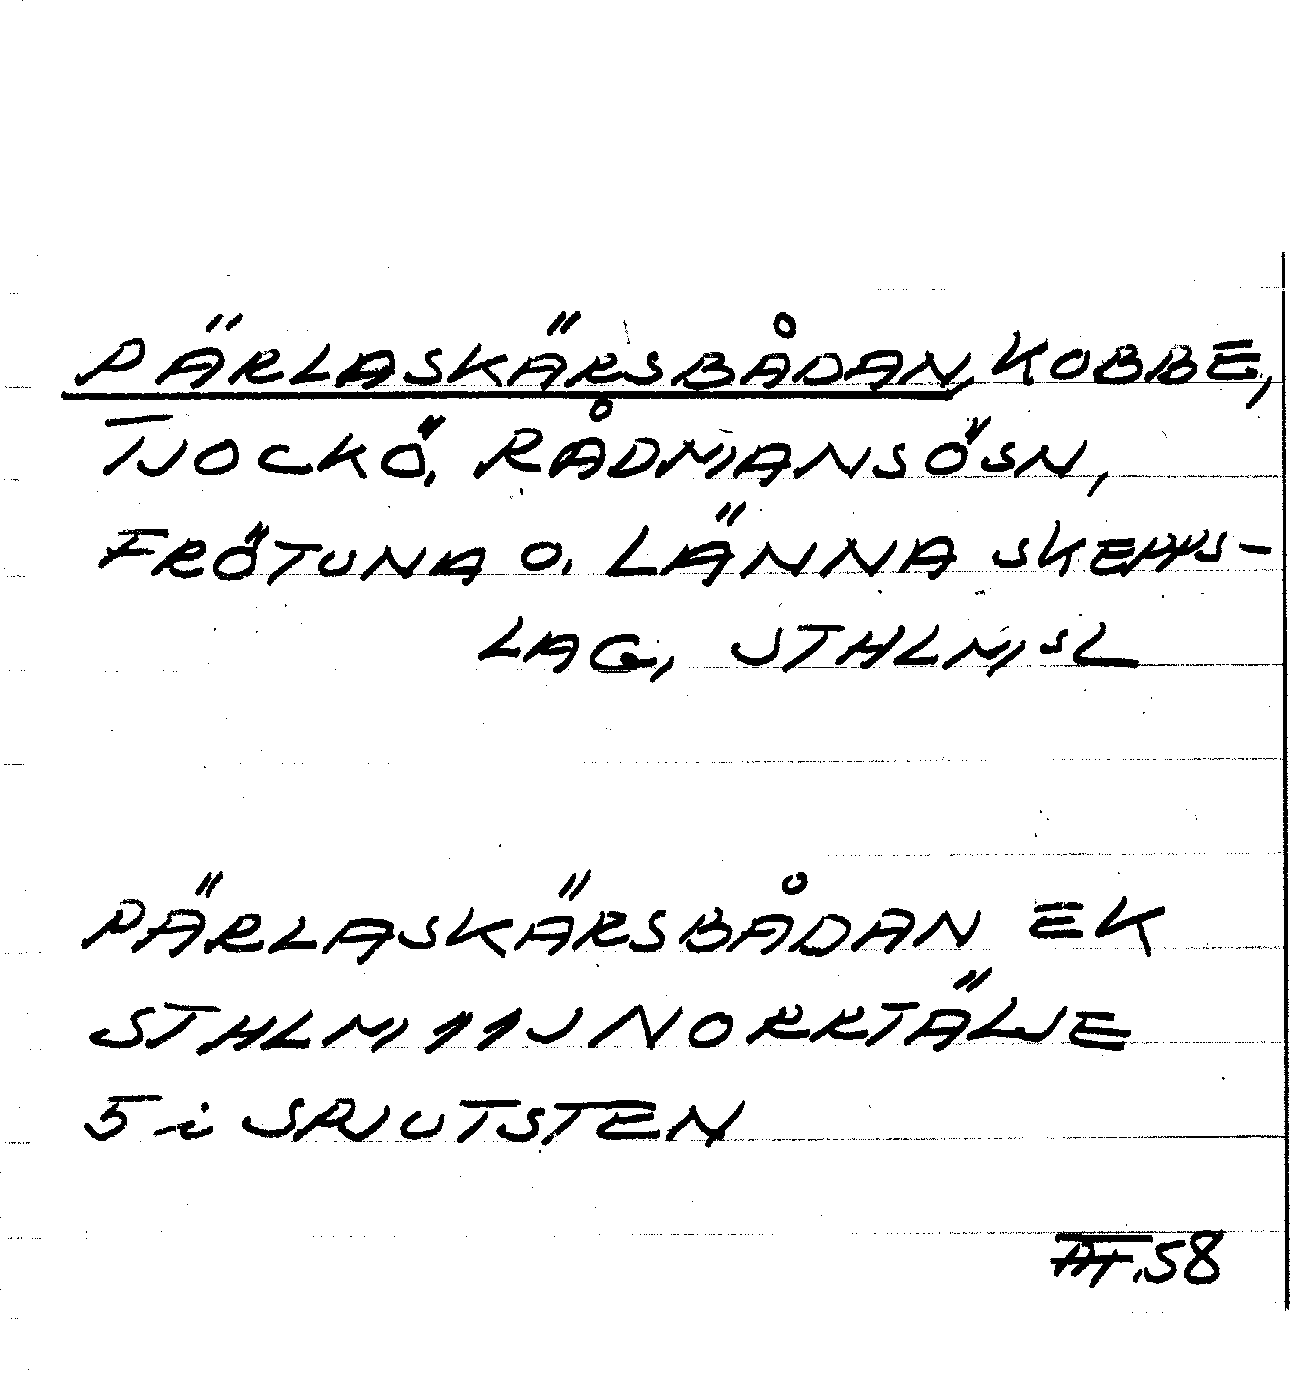 PÄRLASKÄRSBÅDAN, KOBBE,
TJOCKÖ, RÅDMANSÖ SN,
FRÖTUNA O. LÄNNA SKEPPS-
LAG, STHLM, SL
PÄRLASKÄRSBÅDAN EK
STHLM 11J NORRTÄLJE
5 i SPJUTSTEN
58